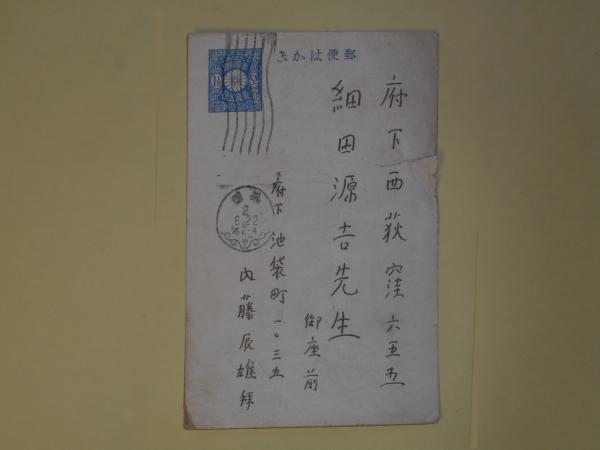 郵便はかき
府下西荻窪六五五
細田源吉先生
御座前
府下池袋町一〇三五
内藤辰雄拝